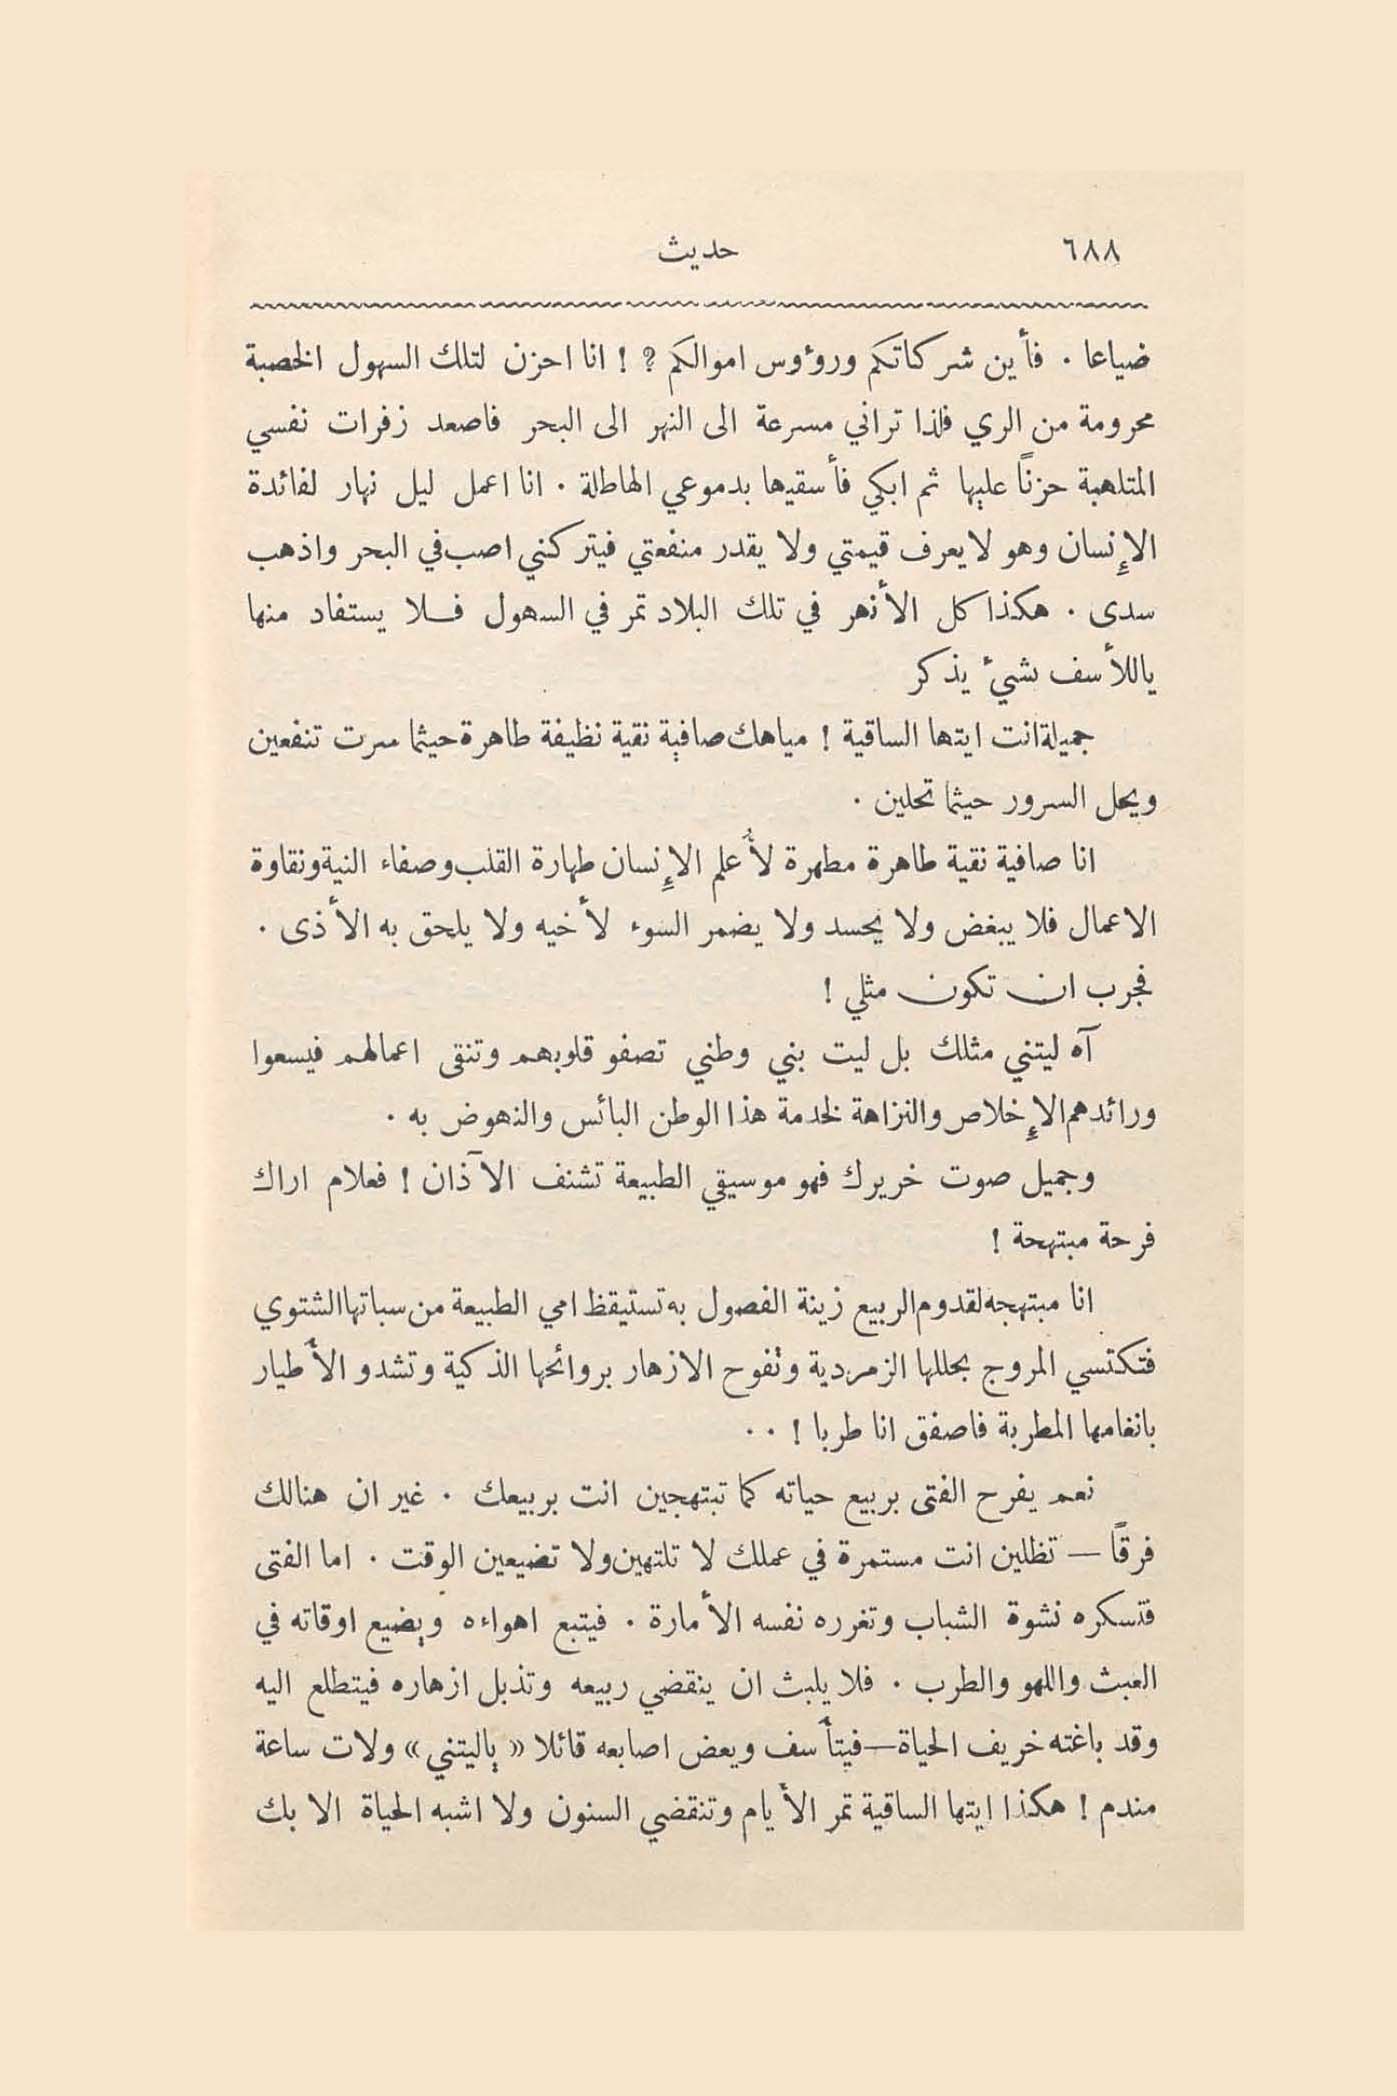 ٦٨٨
حديث
ضياعا . فأين شركاتكم ورؤوس اموالكم ? ! انا احزن لتلك السهول الخصبة
محرومة من الري فلذا تراني مسرعة الى النهر الى البحر فاصعد زفرات نفسي
المتلهبة حزناً عليها ثم ابكي فأسقيها بدموعي الهاطلة . انا اعمل ليل نهار لفائدة
الإنسان وهو لا يعرف قيمتي ولا يقدر منفعتي فيتركني اصب في البحر واذهب
سدى . هكذا كل الأنهر في تلك البلاد تمر في السهول فلا يستفاد منها
ياللأسف بشيء يذكر
جميلة انت ايتها الساقية ! مياهك صافية نقية نظيفة طاهرة حيثما سرت تنفعين
ويحل السرور حيثما تحلين .
انا صافية نقية طاهرة مطهرة لأُعلم الإنسان طهارة القلب وصفاء النية ونقاوة
الاعمال فلا يبغض ولا يحسد ولا يضمر السوء لأخيه ولا يلحق به الأذى .
فجرب ان تكون مثلي !
آه ليتني مثلك بل ليت بني وطني تصفو قلوبهم وتنقى اعمالهم فيسعوا
ورائدهم الإخلاص والنزاهة لخدمة هذا الوطن البائس والنهوض به .
وجميل صوت خريرك فهو موسيقي الطبيعة تشنف الآذان ! فعلام اراك
فرحة مبتهجة !
انا مبتهجه لقدوم الربيع زينة الفصول به تستيقظ امي الطبيعة من سباتها الشتوي
فتكتسي المروج بحللها الزمردية وتفوح الازهار بروائحها الذكية وتشدو الأطيار
بانغامها المطربة فاصفق انا طربا ! . .
نعم يفرح الفتى بربيع حياته كما تبتهجين انت بربيعك . غير ان هنالك
فرقاً — تظلين انت مستمرة في عملك لا تلتهين ولا تضيعين الوقت . اما الفتى
فتسكره نشوة الشباب وتغرره نفسه الأمارة . فيتبع اهواءه ويضيع اوقاته في
العبث واللهو والطرب . فلا يلبث ان ينقضي ربيعه وتذبل ازهاره فيتطلع اليه
وقد باغته خريف الحياة — فيتأسف ويعض اصابعه قائلا « ياليتني » ولات ساعة
مندم ! هكذا ايتها الساقية تمر الأيام وتنقضي السنون ولا اشبه الحياة الا بك